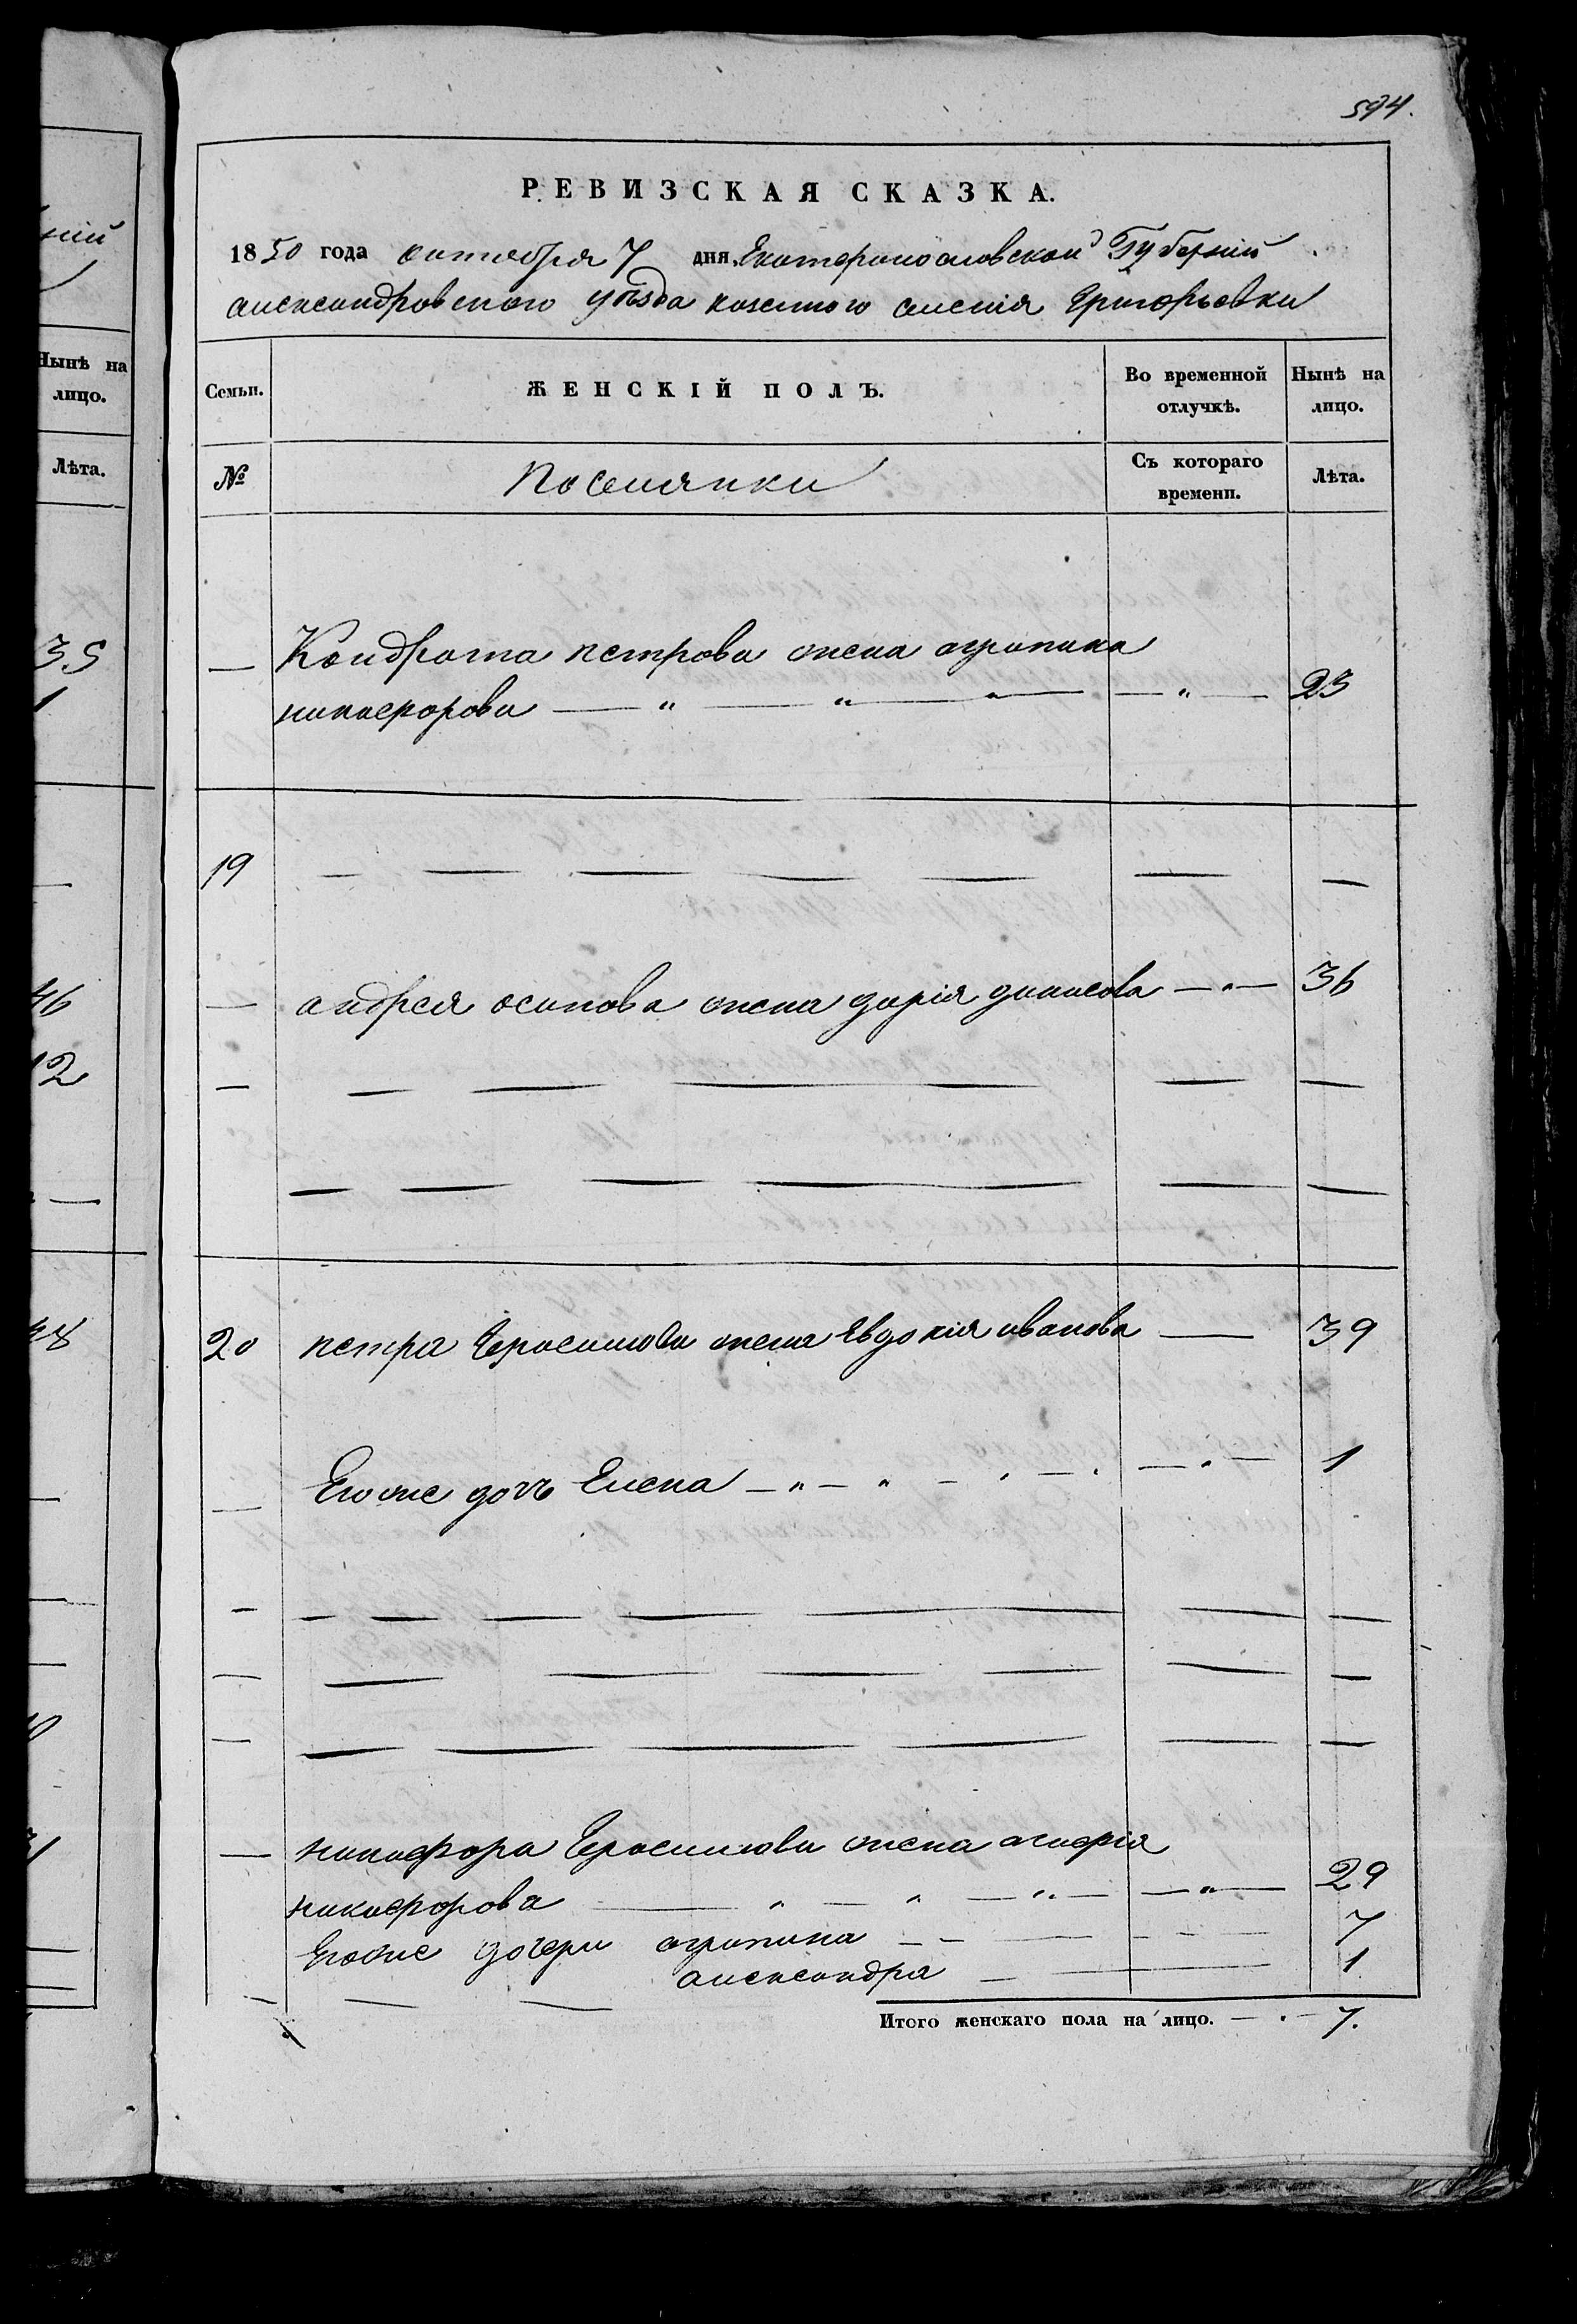 594.
РЕВИЗСКАЯ СКАЗКА.
1850 года октября 7 дня, Екатеринославской Губерніи
александровского уѣзда казенного селенія Григорьевки
ній
Нынѣ на
лицо.
Лѣта.
Семьи.
ЖЕНСКІЙ ПОЛЪ.
Во временной
отлучкѣ.
Нынѣ на
лицо.
№
Поселянки
Съ котораго
времени.
Лѣта.
35
1
— Кондрата петрова жена агрипина
никифорова — „ — „ — „ — — „ — 23
19 — — — — — — —
46
— андрея осипова жена дарія данилова — „ — 36
12
— — — — — —
— — — — — — —
48
20 петра Герасимова жена Евдокія иванова — 39
— Егоже дочь Елена — „ — „ — „ — „ — „ — 1
— — — — — — — — —
— — — — — — —
— — — — — — —
— никифора Герасимова жена агафія
никифорова — „ — „ — „ — — „ — 29
Егоже дочери агрипина — — — — — 7
александра — — 1
— — —
Итого женскаго пола на лицо. — . — 7.